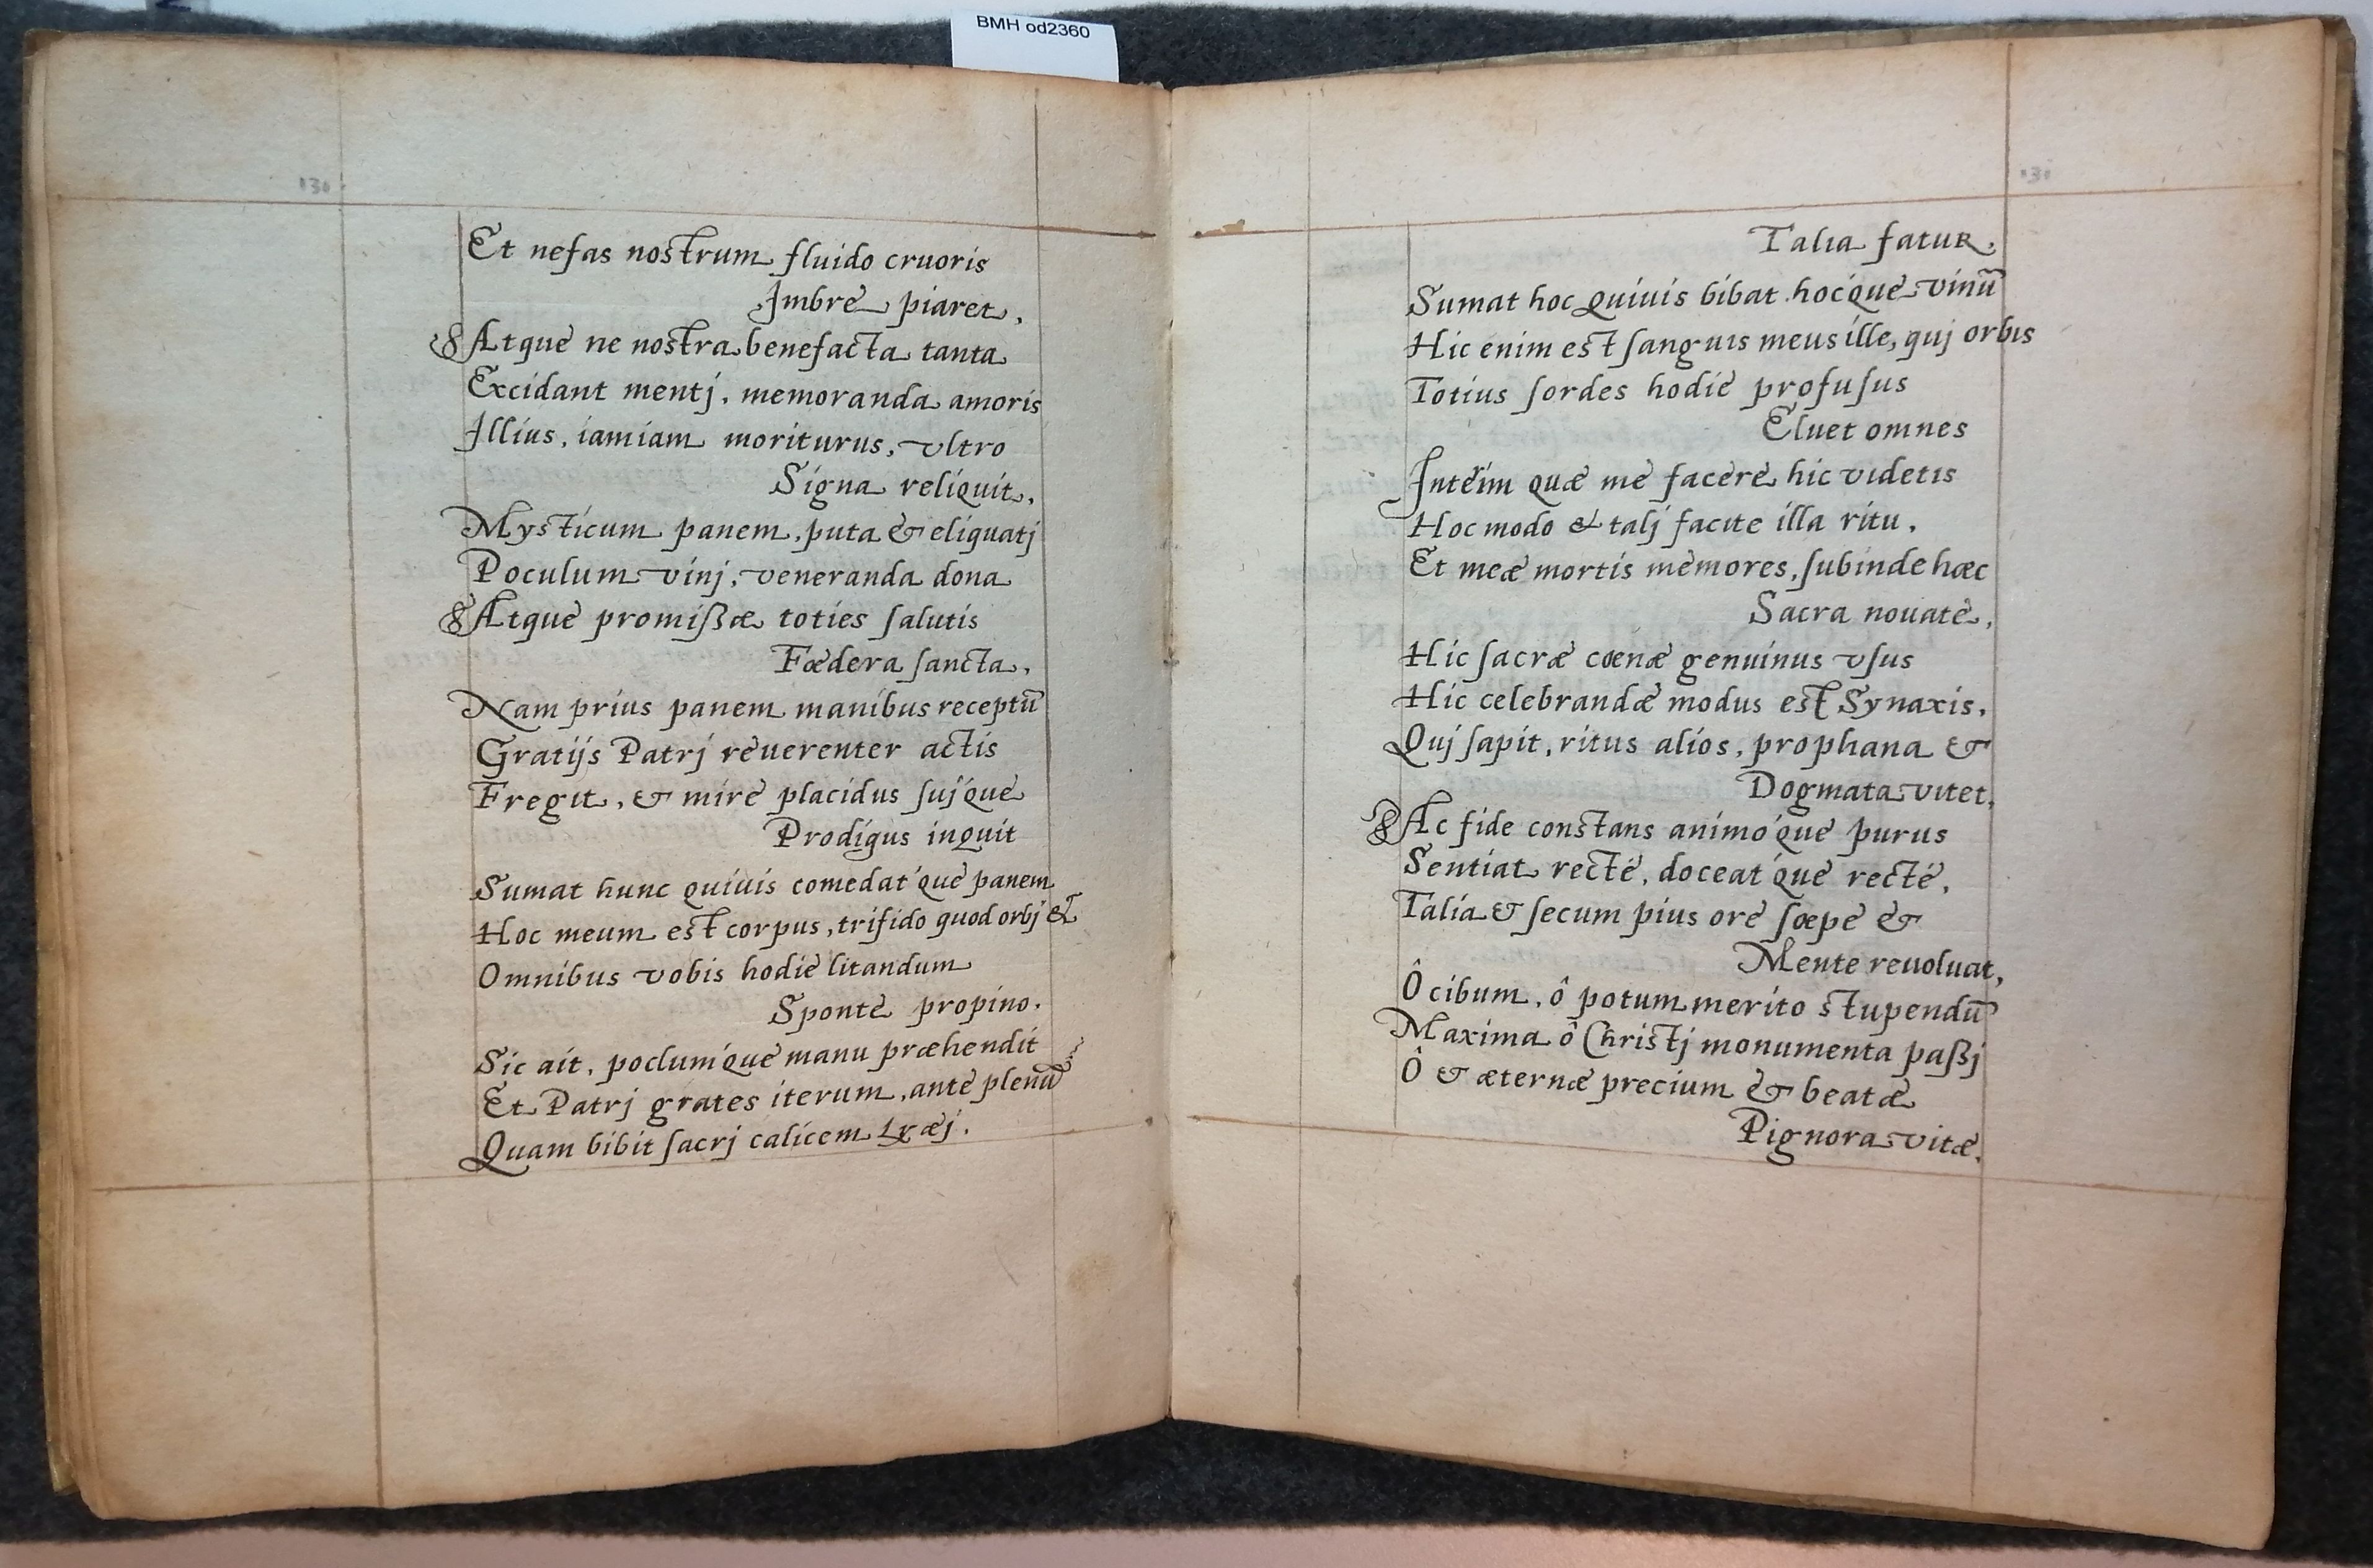 BMH od2360
130
Et nefas nostrum fluido cruoris
Imbre piaret,
Atque ne nostra benefacta tanta
Excidant mentj, memoranda amoris
Illius, iamiam moriturus, vltro
Signa reliquit,
Mysticum panem, puta & eliquatj
Poculum vinj, veneranda dona
Atque promißæ toties ſalutis
Fœdera ſancta,
Nam prius panem manibus receptū
Gratijs Patrj reuerenter actis
Fregit, & mire placidus ſuj'que
Prodigus inquit
Sumat hunc quiuis comedat'que panem
Hoc meum est corpus, trifido quod orbj &
Omnibus vobis hodie litandum
Sponte propino.
Sic ait, poclum'que manu præhendit
Et Patrj grates iterum, ante plenū
Quam bibit ſacrj calicem
131
Talia fatur,
Sumat hoc quiuis bibat hoc'que vinū
Hic enim est ſanguis meus ille, quj orbis
Totius ſordes hodie profuſus
Eluet omnes
Interim quæ me facere hic videtis
Hoc modo & talj facite illa ritu,
Et meæ mortis memores, ſubinde hæc
Sacra nouate,
Hic ſacræ cœnæ genuinus vſus
Hic celebrandæ modus est Synaxis,
Quj ſapit, ritus alios, prophana &
Dogmata vitet,
Ac fide constans animo'que purus
Sentiat recté, doceat'que recté,
Talia & ſecum pius ore ſæpe &
Mente reuoluat,
Ô cibum, ô potum merito stupendū
Maxima ô Christj monumenta paßj
Ô & æternæ precium & beatæ
Pignora vitæ.